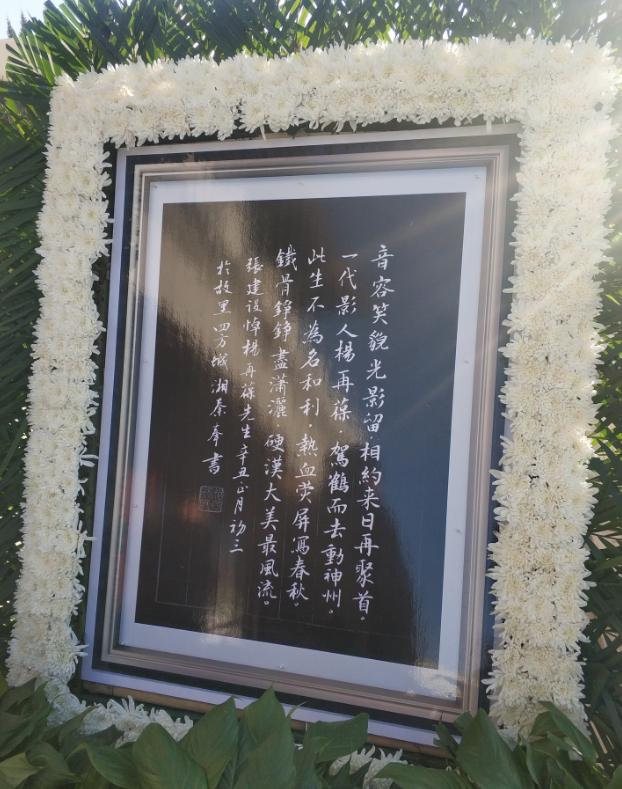 音容笑貌光影留，相約来日再聚首。
一代影人楊再葆，駕鶴而去動神州。
此生不為名和利，熱血荧屏寫春秋。
鐵骨錚錚盡瀟灑，硬漢大美最風流。
張建设悼楊再葆先生辛丑正月初三
於故里四方城湘秦奉書